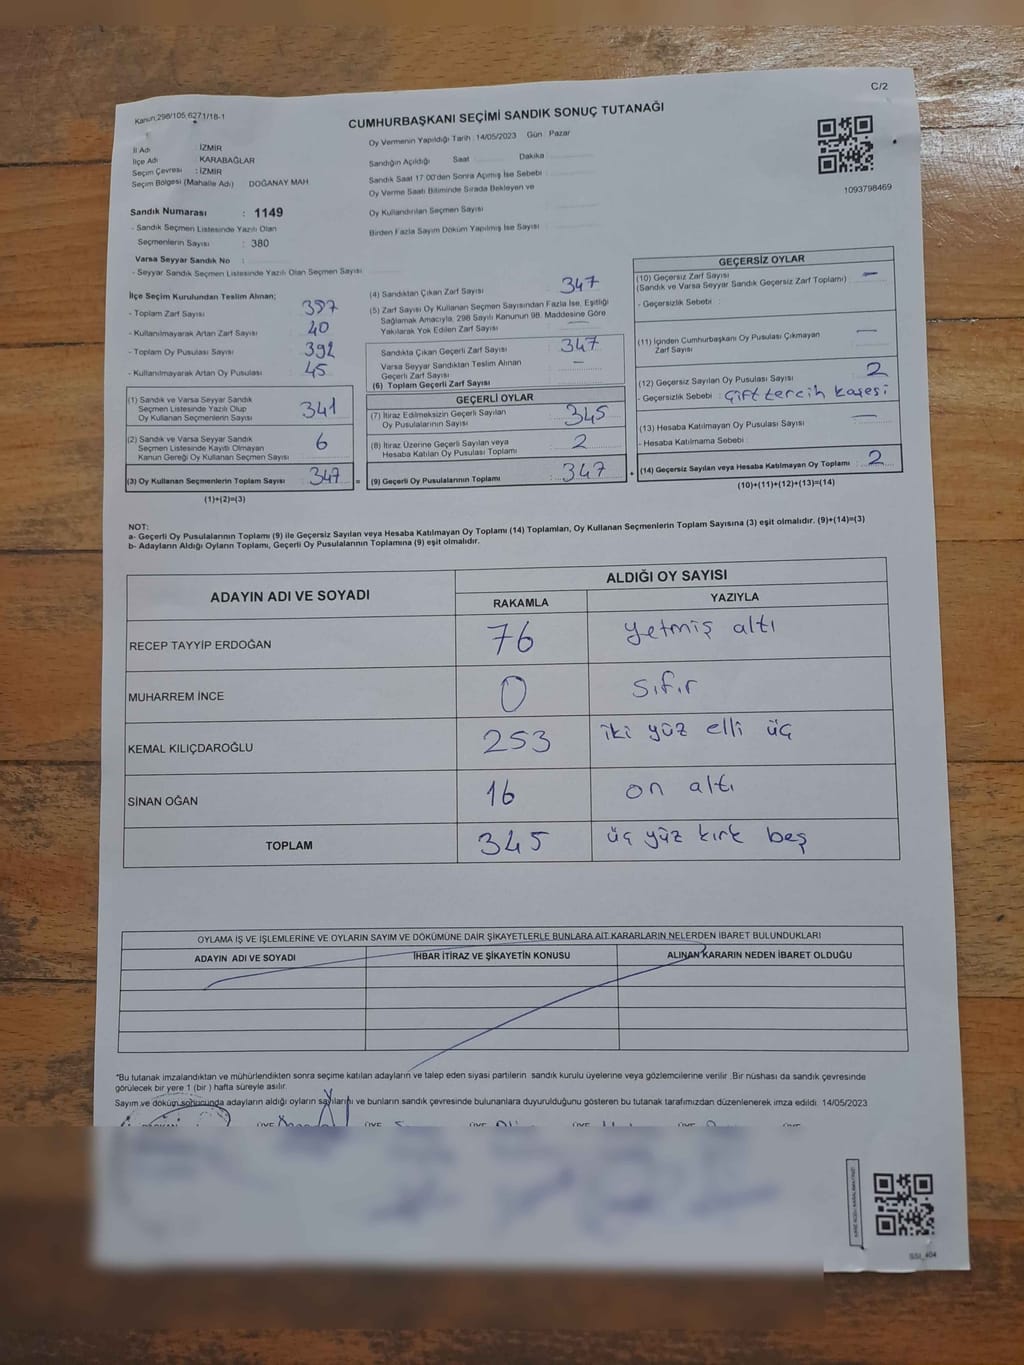 C/2
Kanun;298/105,6271/18-1
CUMHURBAŞKANI SEÇİMİ SANDIK SONUÇ TUTANAĞI
Oy Vermenin Yapıldığı Tarih : 14/05/2023 Gün : Pazar
İl Adı : İZMİR
İlçe Adı : KARABAĞLAR
Seçim Çevresi : İZMİR
Seçim Bölgesi (Mahalle Adı) DOĞANAY MAH
Sandığın Açıldığı Saat Dakika
Sandık Saat 17:00'den Sonra Açımış İse Sebebi
Oy Verme Saati Bitiminde Sırada Bekleyen ve
Oy Kullandırılan Seçmen Sayısı
Birden Fazla Sayım Döküm Yapılmış İse Sayısı
1093798469
Sandık Numarası : 1149
- Sandık Seçmen Listesinde Yazılı Olan
Seçmenlerin Sayısı : 380
Varsa Seyyar Sandık No :
- Seyyar Sandık Seçmen Listesinde Yazılı Olan Seçmen Sayısı
İlçe Seçim Kurulundan Teslim Alınan;
- Toplam Zarf Sayısı
- Kullanılmayarak Artan Zarf Sayısı 40
- Toplam Oy Pusulası Sayısı 392
- Kullanılmayarak Artan Oy Pusulası 45
(1) Sandık ve Varsa Seyyar Sandık
Seçmen Listesinde Yazılı Olup
Oy Kullanan Seçmenlerin Sayısı 341
(2) Sandık ve Varsa Seyyar Sandık
Seçmen Listesinde Kayıtlı Olmayan
Kanun Gereği Oy Kullanan Seçmen Sayısı 6
(3) Oy Kullanan Seçmenlerin Toplam Sayısı 347 =
(1)+(2)=(3)
(4) Sandıktan Çıkan Zarf Sayısı 347
(5) Zarf Sayısı Oy Kullanan Seçmen Sayısından Fazla İse, Eşitliği
Sağlamak Amacıyla, 298 Sayılı Kanunun 98. Maddesine Göre
Yakılarak Yok Edilen Zarf Sayısı —
Sandıkta Çıkan Geçerli Zarf Sayısı 347
Varsa Seyyar Sandıktan Teslim Alınan
Geçerli Zarf Sayısı —
(6) Toplam Geçerli Zarf Sayısı
GEÇERLİ OYLAR
(7) İtiraz Edilmeksizin Geçerli Sayılan
Oy Pusulalarının Sayısı 345
(8) İtiraz Üzerine Geçerli Sayılan veya
Hesaba Katılan Oy Pusulası Toplamı 2
(9) Geçerli Oy Pusulalarının Toplamı 347 +
GEÇERSİZ OYLAR
(10) Geçersiz Zarf Sayısı —
(Sandık ve Varsa Seyyar Sandık Geçersiz Zarf Toplamı)
- Geçersizlik Sebebi :
(11) İçinden Cumhurbaşkanı Oy Pusulası Çıkmayan —
Zarf Sayısı
(12) Geçersiz Sayılan Oy Pusulası Sayısı 2
- Geçersizlik Sebebi : Çift tercih kaşesi
(13) Hesaba Katılmayan Oy Pusulası Sayısı —
- Hesaba Katılmama Sebebi :
(14) Geçersiz Sayılan veya Hesaba Katılmayan Oy Toplamı 2
(10)+(11)+(12)+(13)=(14)
NOT:
a- Geçerli Oy Pusulalarının Toplamı (9) ile Geçersiz Sayılan veya Hesaba Katılmayan Oy Toplamı (14) Toplamları, Oy Kullanan Seçmenlerin Toplam Sayısına (3) eşit olmalıdır. (9)+(14)=(3)
b- Adayların Aldığı Oyların Toplamı, Geçerli Oy Pusulalarının Toplamına (9) eşit olmalıdır.
ADAYIN ADI VE SOYADI
ALDIĞI OY SAYISI
RAKAMLA YAZIYLA
RECEP TAYYİP ERDOĞAN 76 yetmiş altı
MUHARREM İNCE 0 sıfır
KEMAL KILIÇDAROĞLU 253 iki yüz elli üç
SİNAN OĞAN 16 on altı
TOPLAM 345 üç yüz kırk beş
OYLAMA İŞ VE İŞLEMLERİNE VE OYLARIN SAYIM VE DÖKÜMÜNE DAİR ŞİKAYETLERLE BUNLARA AİT KARARLARIN NELERDEN İBARET BULUNDUKLARI
ADAYIN ADI VE SOYADI İHBAR İTİRAZ VE ŞİKAYETİN KONUSU ALINAN KARARIN NEDEN İBARET OLDUĞU
*Bu tutanak imzalandıktan ve mühürlendikten sonra seçime katılan adayların ve talep eden siyasi partilerin sandık kurulu üyelerine veya gözlemcilerine verilir .Bir nüshası da sandık çevresinde
görülecek bir yere 1 (bir ) hafta süreyle asılır.
Sayım ve döküm sonucunda adayların aldığı oyların sayılarını ve bunların sandık çevresinde bulunanlara duyurulduğunu gösteren bu tutanak tarafımızdan düzenlenerek imza edildi. 14/05/2023